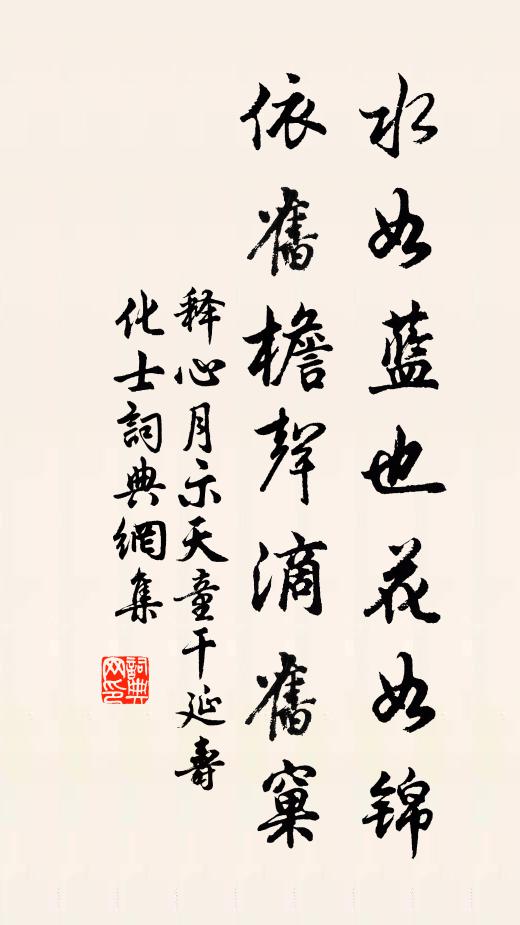 水如藍也花如錦
依舊檐聲滴舊窠
释心月示天童干延壽
化士詞典網集
詞典网